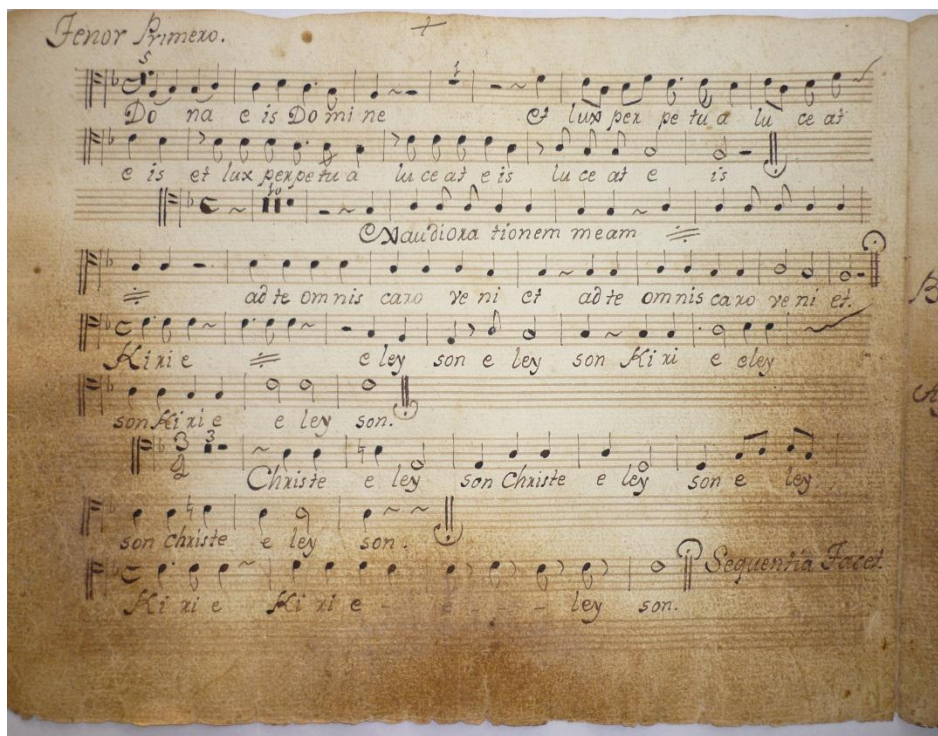 Tenor Primero.
5
Do na e is Do mi ne et lux per pe tu a lu ce at
e is et lux perpe tu a lu ce at e is lu ce at e is
10
Exaudi ora tionem meam
ad te om nis caro ve ni et ad te omnis caro ve ni et.
Kirie e ley son e ley son Kiri e eley
son Kirie e ley son.
3 2 3
Christe e ley son Christe e ley son e ley
son christe e ley son.
Sequentia Tacet.
Ki ri e Ki ri e - e - - - ley son.